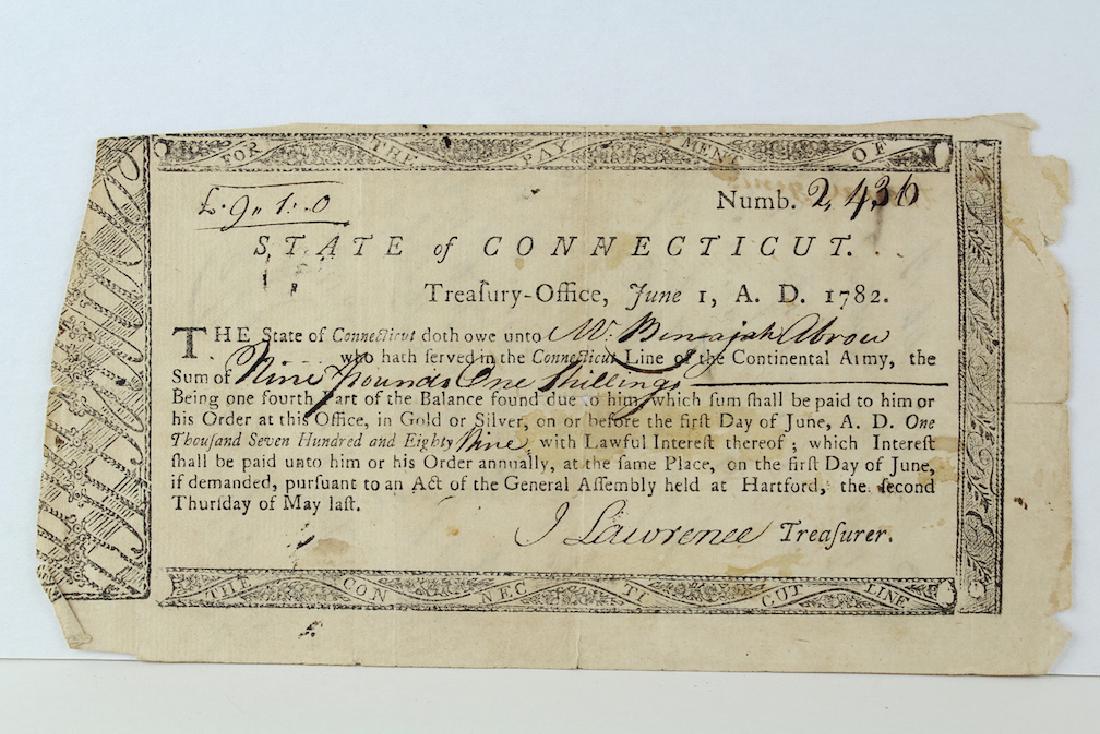 FOR THE PAYMENT OF
£ 9 „ 1 : 0
Numb. 2,436
STATE of CONNECTICUT.
Treaſury-Office, June 1, A. D. 1782.
THE State of Connecticut doth owe unto Mr. Benajah Abrow
who hath ſerved in the Connecticut Line of the Continental Army, the
Sum of Nine Pounds One Shillings
Being one fourth Part of the Balance found due to him, which ſum ſhall be paid to him or
his Order at this Office, in Gold or Silver, on or before the firſt Day of June, A. D. One
Thouſand Seven Hundred and Eighty Nine, with Lawful Intereſt thereof ; which Intereſt
ſhall be paid unto him or his Order annually, at the ſame Place, on the firſt Day of June,
if demanded, purſuant to an Act of the General Aſſembly held at Hartford, the ſecond
Thurſday of May laſt.
J Lawrence Treaſurer.
THE CONNECTICUT LINE